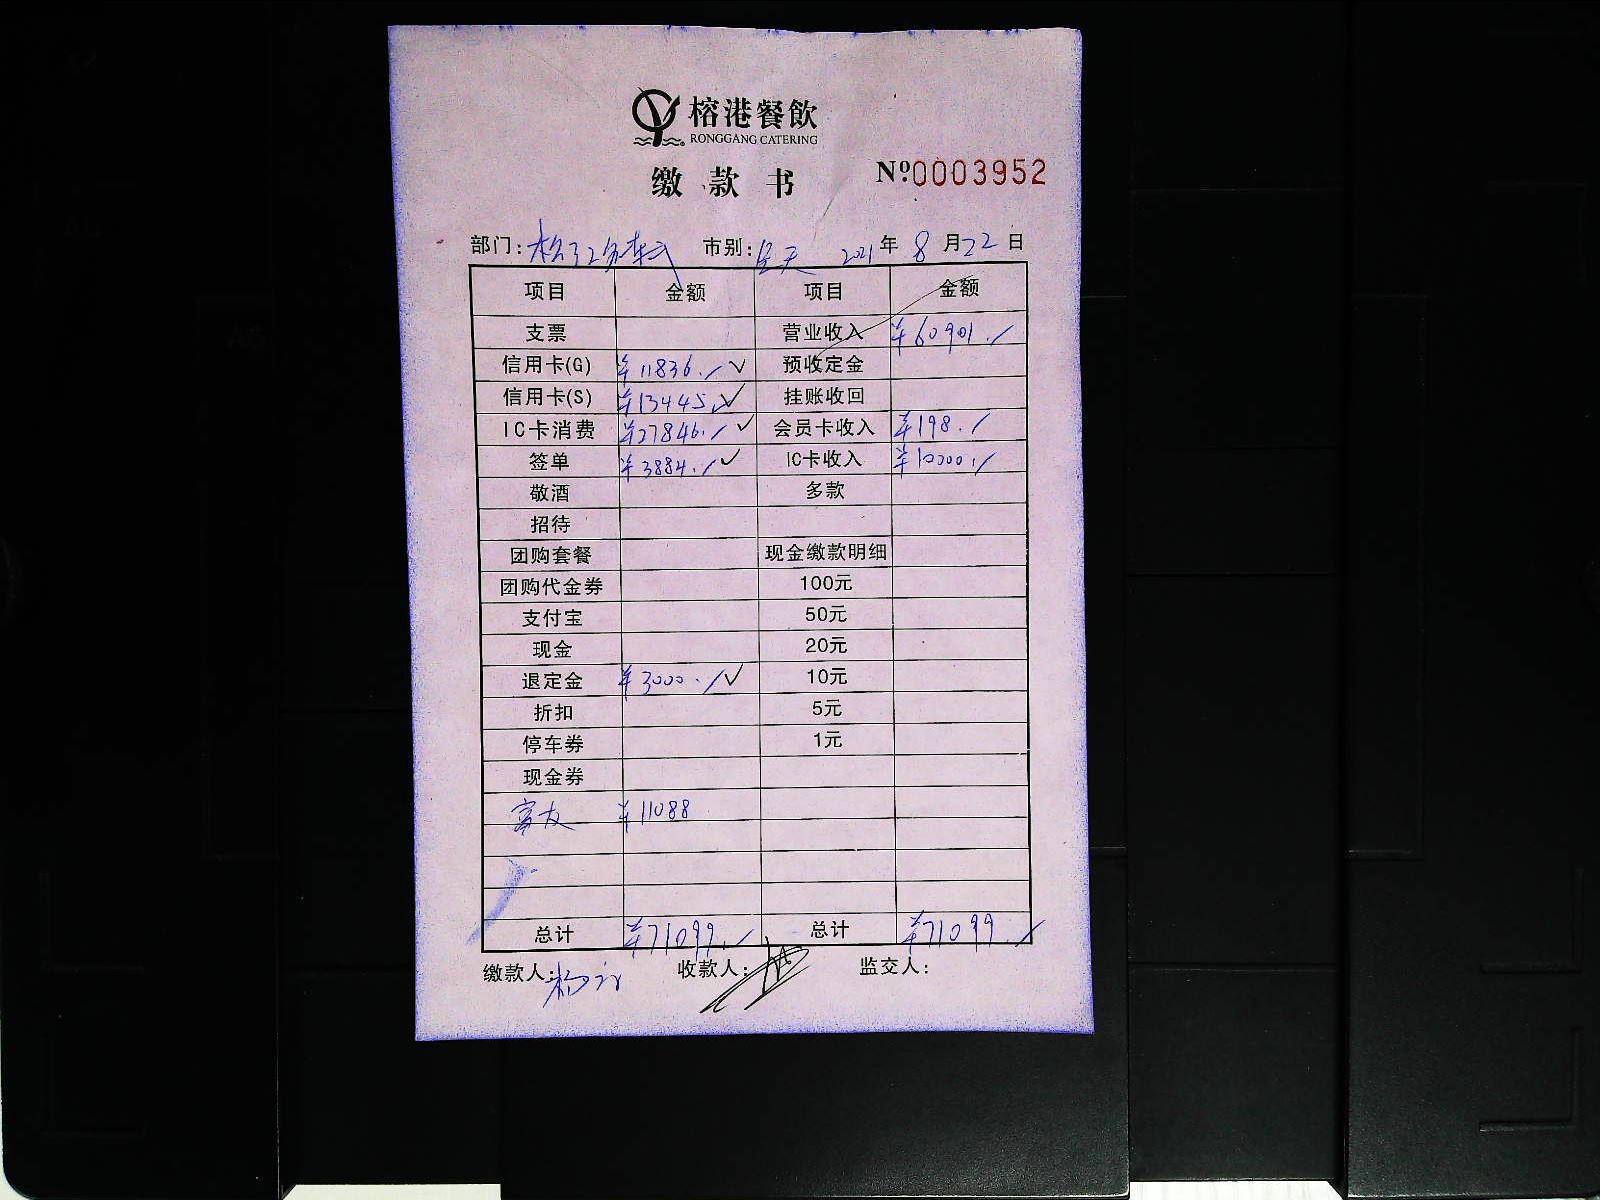 榕港餐飲
RONGGANG CATERING
缴款书
Nº0003952
部门: 市别:全天 2021年8月22日
项目 金额 项目 金额
支票 营业收入 ¥60901.
信用卡(G) ¥11836. 预收定金
信用卡(S) ¥13445. 挂账收回
IC卡消费 ¥27846. 会员卡收入 ¥198.
签单 ¥3884. IC卡收入 ¥10000.
敬酒 多款
招待
团购套餐 现金缴款明细
团购代金券 100元
支付宝 50元
现金 20元
退定金 ¥3000. 10元
折扣 5元
停车券 1元
现金券
富友 ¥11088
总计 ¥71099. 总计 ¥71099.
缴款人: 收款人: 监交人: